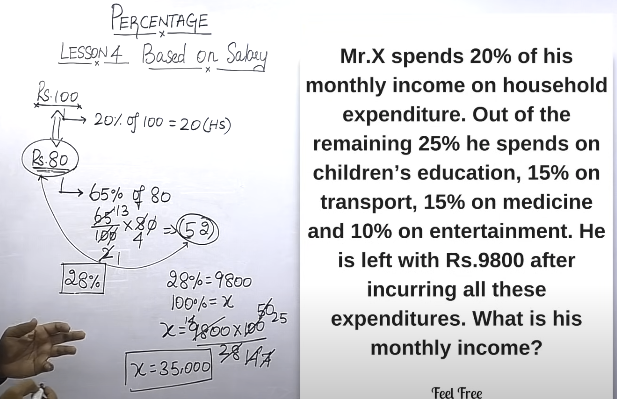 PERCENTAGE
LESSON 4 Based on Salary
Rs.100
20% of 100 = 20 (HS)
Rs.80
65% of 80
65 13
100 × 80 ⇒ 52
2 1 4
28%
28% = 9800
100% = x
x = 9800 × 100 50 25
28 14 7
x = 35,000
Mr.X spends 20% of his
monthly income on household
expenditure. Out of the
remaining 25% he spends on
children's education, 15% on
transport, 15% on medicine
and 10% on entertainment. He
is left with Rs.9800 after
incurring all these
expenditures. What is his
monthly income?
Feel Free